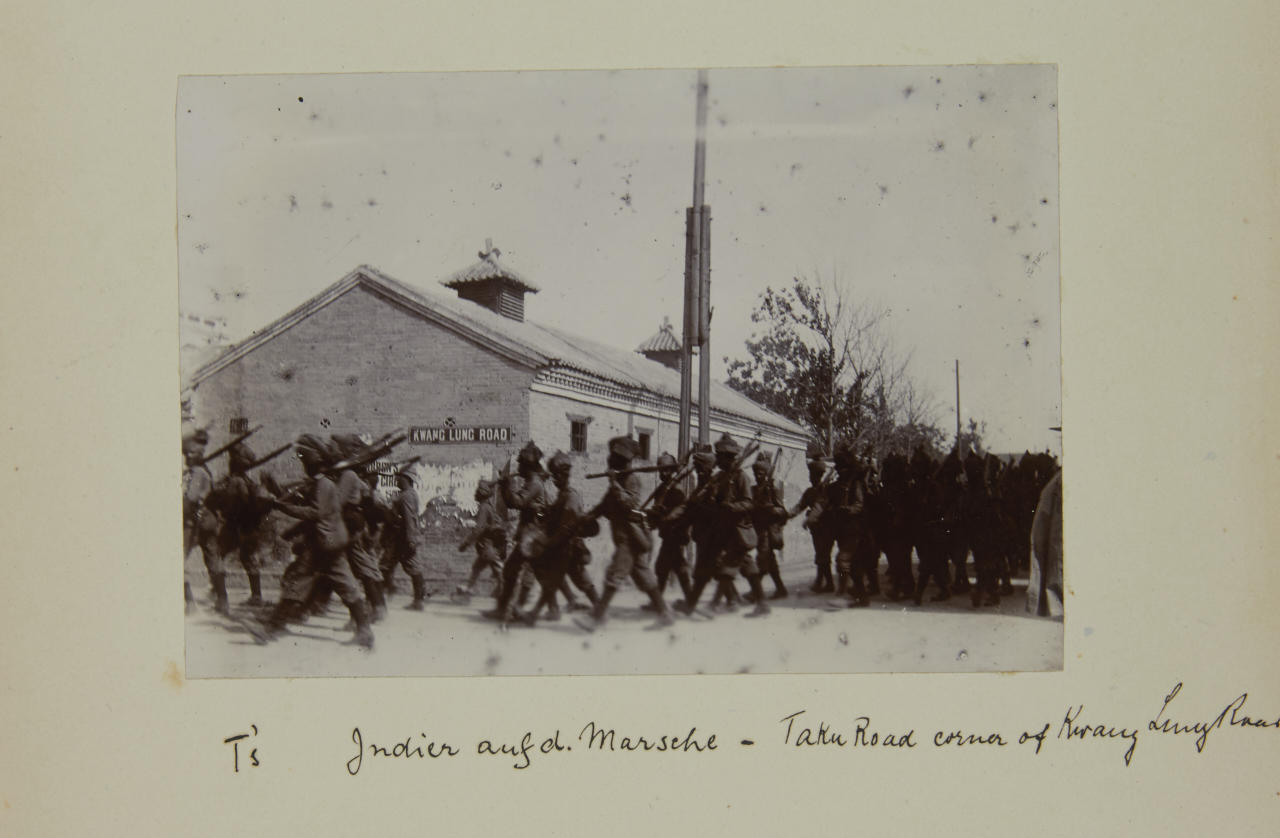 KWANG LUNG ROAD
T's Indier auf d. Marsche - Taku Road corner of Kwang Lung Road